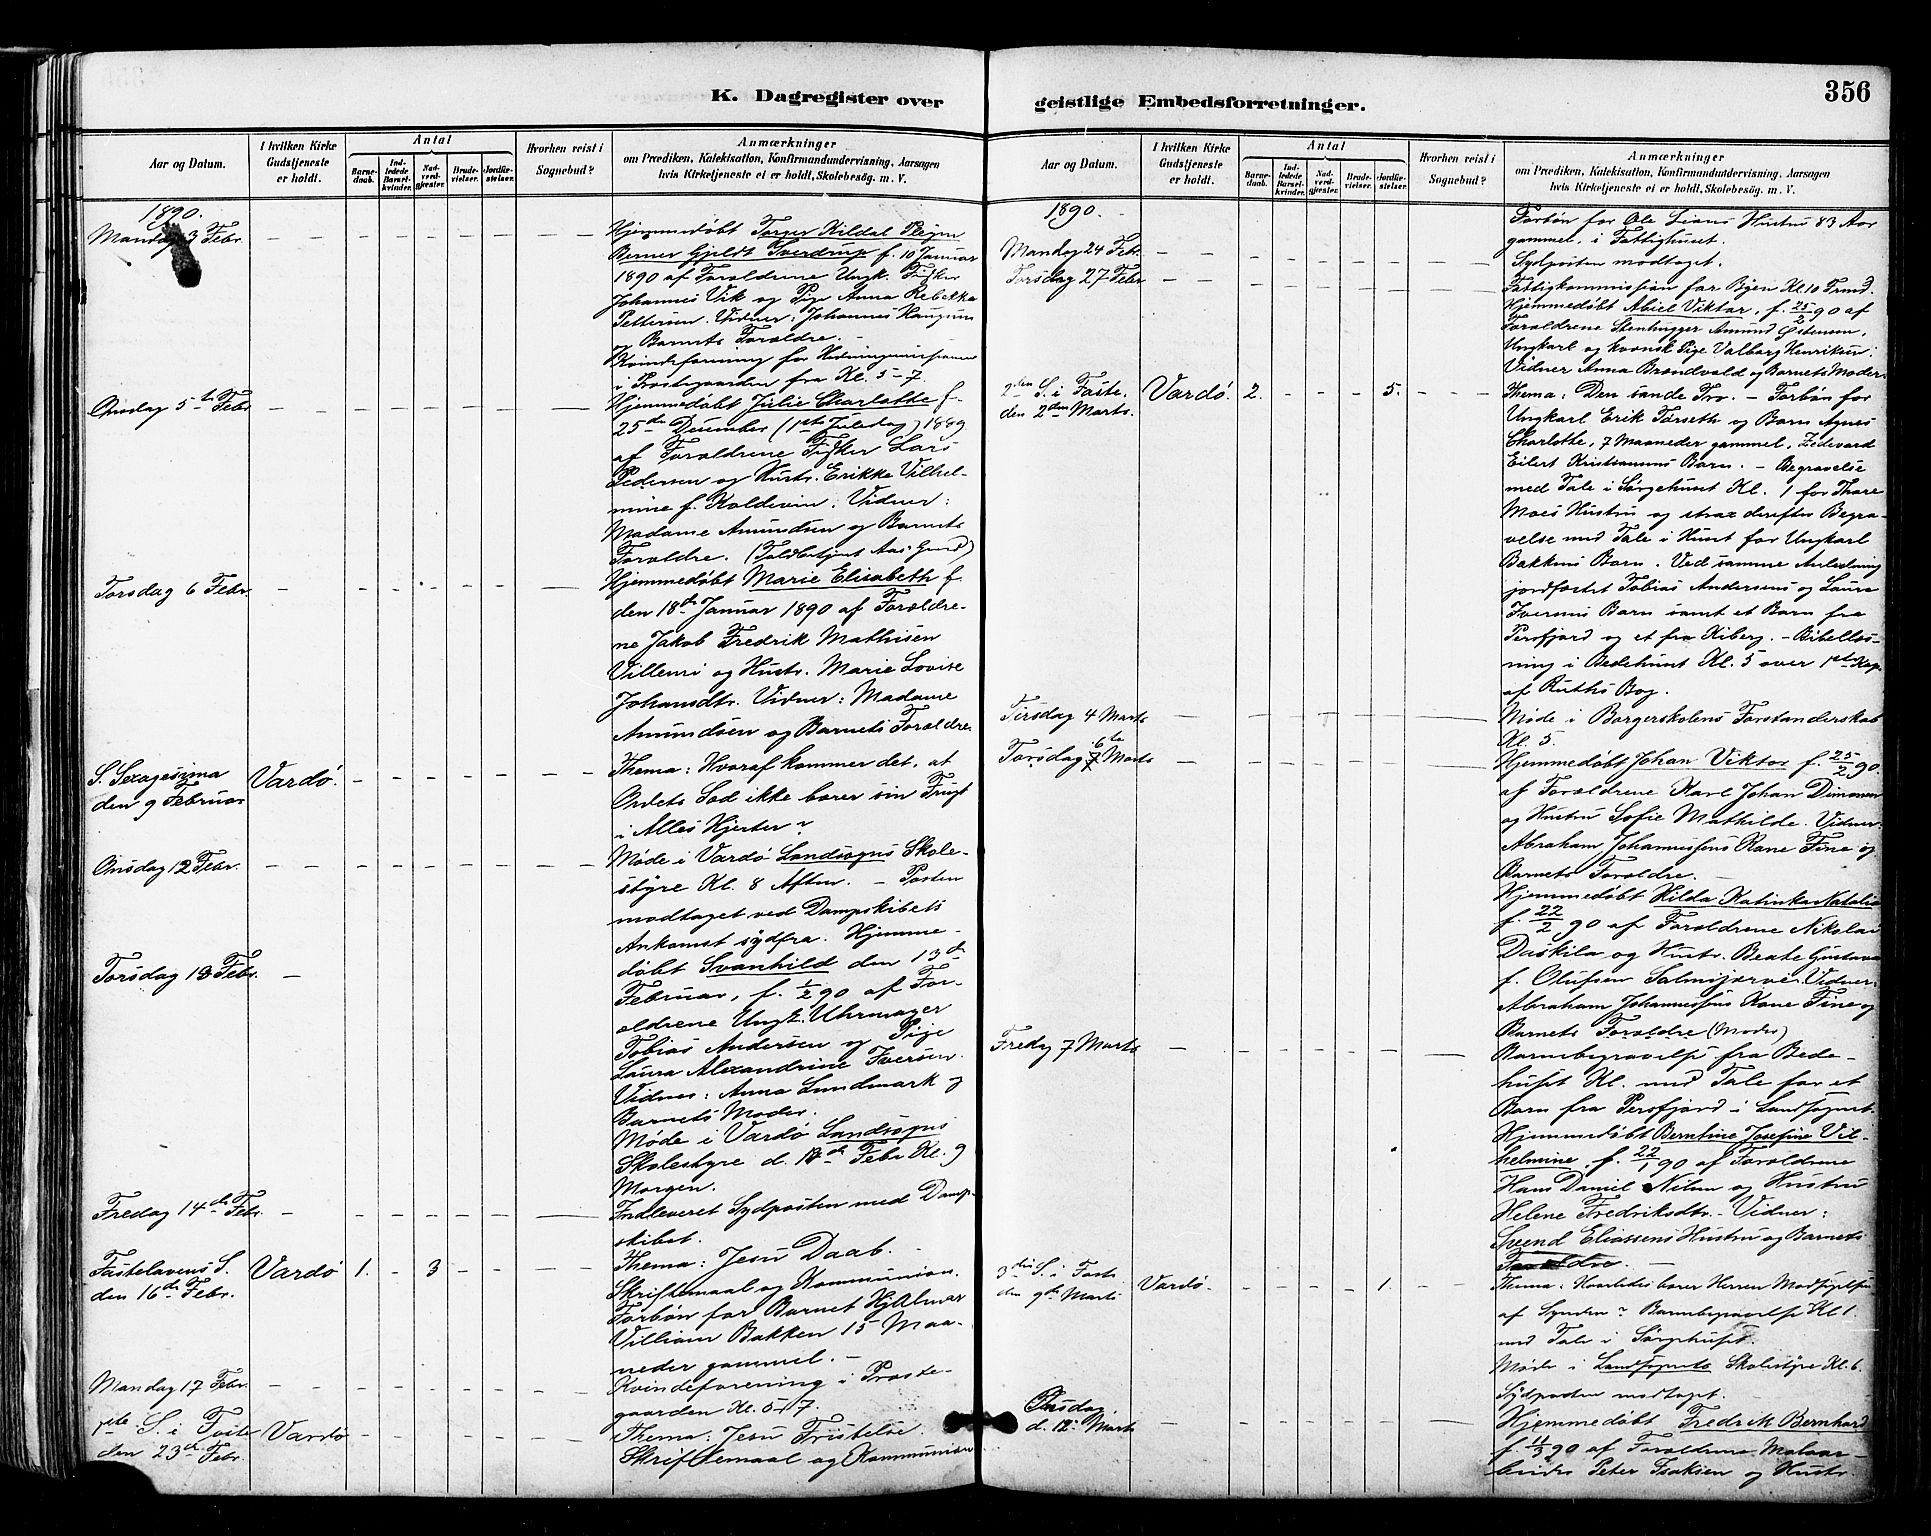 K. Dagregister over
Aar og Datum.
I hvilken Kirke
Gudstjeneste
er holdt.
Antal
Barne-
daab.
Ind-
ledede
Barsel-
kvinder.
Nad-
verd-
gjester.
Brude-
vielser.
Jordfæ-
stelser.
Hvorhen reist i
Sognebud?
Anmærkninger
om Prædiken, Katekisation, Konfirmandundervisning, Aarsagen
hvis Kirketjeneste ei er holdt, Skolebesög. m. V.
1890.
Mandag 3 Febr.
Hjemmedøbt Torger Kildal
Berner Gjeldt Sverdrup f. 10 Januar
1890 af Forældrene Ungk. Fisker
Johannes Vik og Pige Anna Rebekka
Pettersen. Vidner: Johannes
og Barnets Forældre. -
Kvindeforening for
i Prostegaarden fra Kl. 5-7.
Onsdag 5te Febr.
Hjemmedøbt Julie Charlotte f.
25de December (1ste Juledag) 1889
af Forældrene Fisker Lars
Pedersen og Hustr. Erikke Vilhel-
mine f. Koldevin. Vidner:
Madame Amundsen og Barnets
Forældre. (Toldbetjent)
Torsdag 6 Febr.
Hjemmedøbt Marie Elisabeth f.
den 18de Januar 1890 af Forældre-
ne Jakob Fredrik Mathisen
Villemi og Hustr. Marie Lovise
Johansdtr. Vidner: Madame
Amundsen og Barnets Forældre.
S. Sexagesima
den 9 Februar
Vardø.
Thema: Hvoraf kommer det, at
Ordets Sæd ikke bærer sin Frugt
i Alles Hjerter?
Onsdag 12 Febr.
Møde i Vardø Landsogns Skole-
styre Kl. 8 Aften. - Posten
modtaget ved Dampskibets
Ankomst sydfra. Hjemme-
Torsdag 13 Febr.
døbt Svanhild den 13de
Februar, f. 1/2 90 af For-
ældrene Ungk. Uhrmager
Tobias Andersen og Pige
Laura Alexandrine Iversen.
Vidner: Anna Lundmark og
Barnets Moder.
Møde i Vardø Landsogns
Skolestyre d. Febr Kl. 9
Morgen.
Fredag 14de Febr.
Indleveret Sydposten med Damp-
skibet.
Fastelavens S.
den 16de Febr.
Vardø 1. - 3
Thema: Jesu Daab.
Skriftemaal og Kommunion.
Forbøn for Barnet Hjalmar
Villiam Bakken 15 Maa-
neder gammel. -
Mandag 17 Febr.
Kvindeforening i Proste-
gaarden Kl. 5-7.
1ste S. i Faste
den 23de Febr.
Vardø
Thema: Jesu Fristelse
Skriftemaal og Kommunion
geistlige Embedsforretninger.
356
Aar og Datum.
I hvilken Kirke
Gudstjeneste
er holdt.
Antal
Barne-
daab.
Ind-
ledede
Barsel-
kvinder.
Nad-
verd-
gjester.
Brude-
vielser.
Jordfæ-
stelser.
Hvorhen reist i
Sognebud?
Anmærkninger
om Prædiken, Katekisation, Konfirmandundervisning, Aarsagen
hvis Kirketjeneste ei er holdt, Skolebesög. m. V.
1890.
Forbøn for Ole Hustru 83 Aar
gammel, i Fattighuset.
Mandag 24 Feb.
Sydposten modtaget.
Torsdag 27 Febr
Fattigkommission for Byen Kl. 10 Formd.
Hjemmedøbt Abiel Viktor, f. 25/2 90 af
Forældrene Stenhugger Amund Østensen,
Ungkarl og kvænsk Pige Valborg Henriksen.
Vidner Anna Brændvold og Barnets Moder.
2den S. i Faste,
den 2den Marts.
Vardø. 2. - - - 5.
Thema: Den sande Tro. - Forbøn for
Ungkarl Erik Torseth og Barn Agnes
Charlotte, 7 Maaneder gammel,
Eilert Kristiansens Barn. - Begravelse
med Tale i Sørgehuset Kl. 1 for Thore
Moes Hustru og strax derefter Begra-
velse med Tale i Huset for Ungkarl
Bakkens Barn. Ved samme Anledning
jordfæstet Tobias Andersens og Laura
Iversens Barn samt et Barn fra
Persfjord og et fra Kiberg. - Bibellæs-
ning i Bedehuset Kl. 5 over 1ste Kap.
af Ruths Bog.
Tirsdag 4 Marts
Møde i Borgerskolens Forstanderskab
Kl. 5.
Torsdag 6te Marts
Hjemmedøbt Johan Viktor f. 25/2 90.
af Forældrene Karl Johan
og Hustru Sofie Mathilde. Vidner:
Abraham Johannessens Kone Fine og
Barnets Forældre.
Hjemmedøbt Hilda Katinka Natalia
f. 22/2 90 af Forældrene Nikolai
Daskila og Hustr. Beate Gustava
f. Olufsen Salmijærvi. Vidner:
Abraham Johannessens Kone Fine og
Barnets Forældre (Moder)
Fredag 7 Marts
Barnebegravelse fra Bede-
huset Kl. med Tale for et
Barn fra Persfjord i Landsognet.
Hjemmedøbt Berntine Josefine Vil-
helmine, f. 22/1 90 af Forældrene
Hans Daniel Nilsen og Hustru
Helene Fredriksdtr. - Vidner:
Svend Eliassens Hustru og Barnets
Forældre. -
3die S. i Faste
den 9de Marts
Vardø. 1.
Thema: Hvorledes bærer Herren
af Synden? Barnebegravelse Kl 1.
med Tale i Sørgehuset.
Møde i Landsognets Skolestyre Kl. 6.
Sydposten modtaget.
Onsdag
d. 12. Marts
Hjemmedøbt Fredrik Bernhard
f. 11/3 90 af Forældrene Malaar-
beider Peter Isaksen og Hustr.